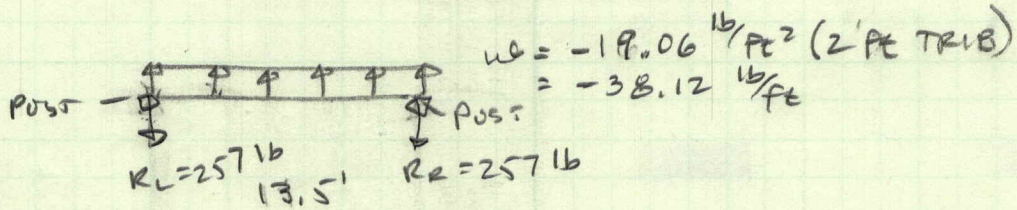 w = -19.06 lb/ft² (2' ft TRIB)
= -38.12 lb/ft
POST
POST
RL = 257 lb
RR = 257 lb
13.5'